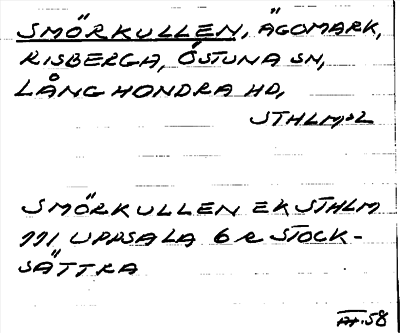 SMÖRKULLEN, ÄGOMARK,
RISBERGA, ÖSTUNA SN,
LÅNGHONDRA HD,
STHLM:S L
SMÖRKULLEN EK STHLM
111 UPPSALA 6 R STOCK-
SÄTTRA
58